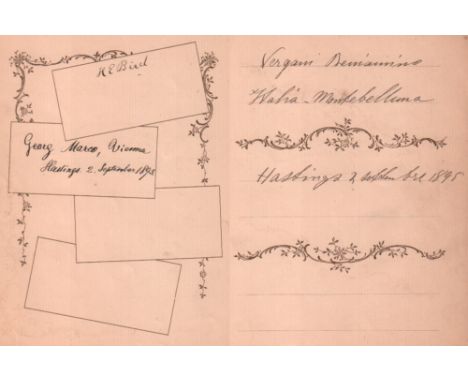 H E Bird
Georg Marco, Vienna
Hastings 2. September 1895
Vergani Beniamino
Italia - Montebelluna
Hastings 2 settembre 1895